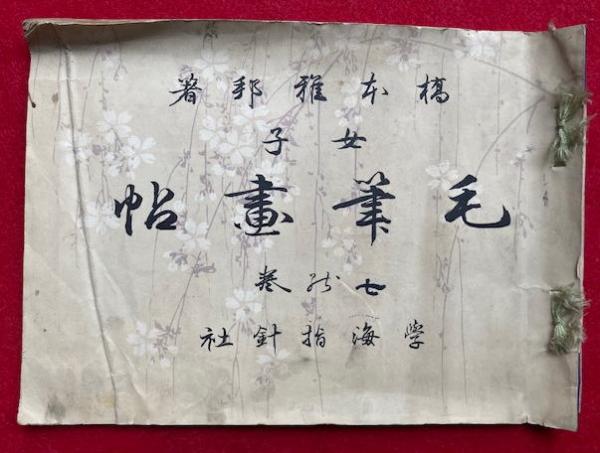 橋本雅邦著
女子
毛筆畫帖
七の卷
學海指針社